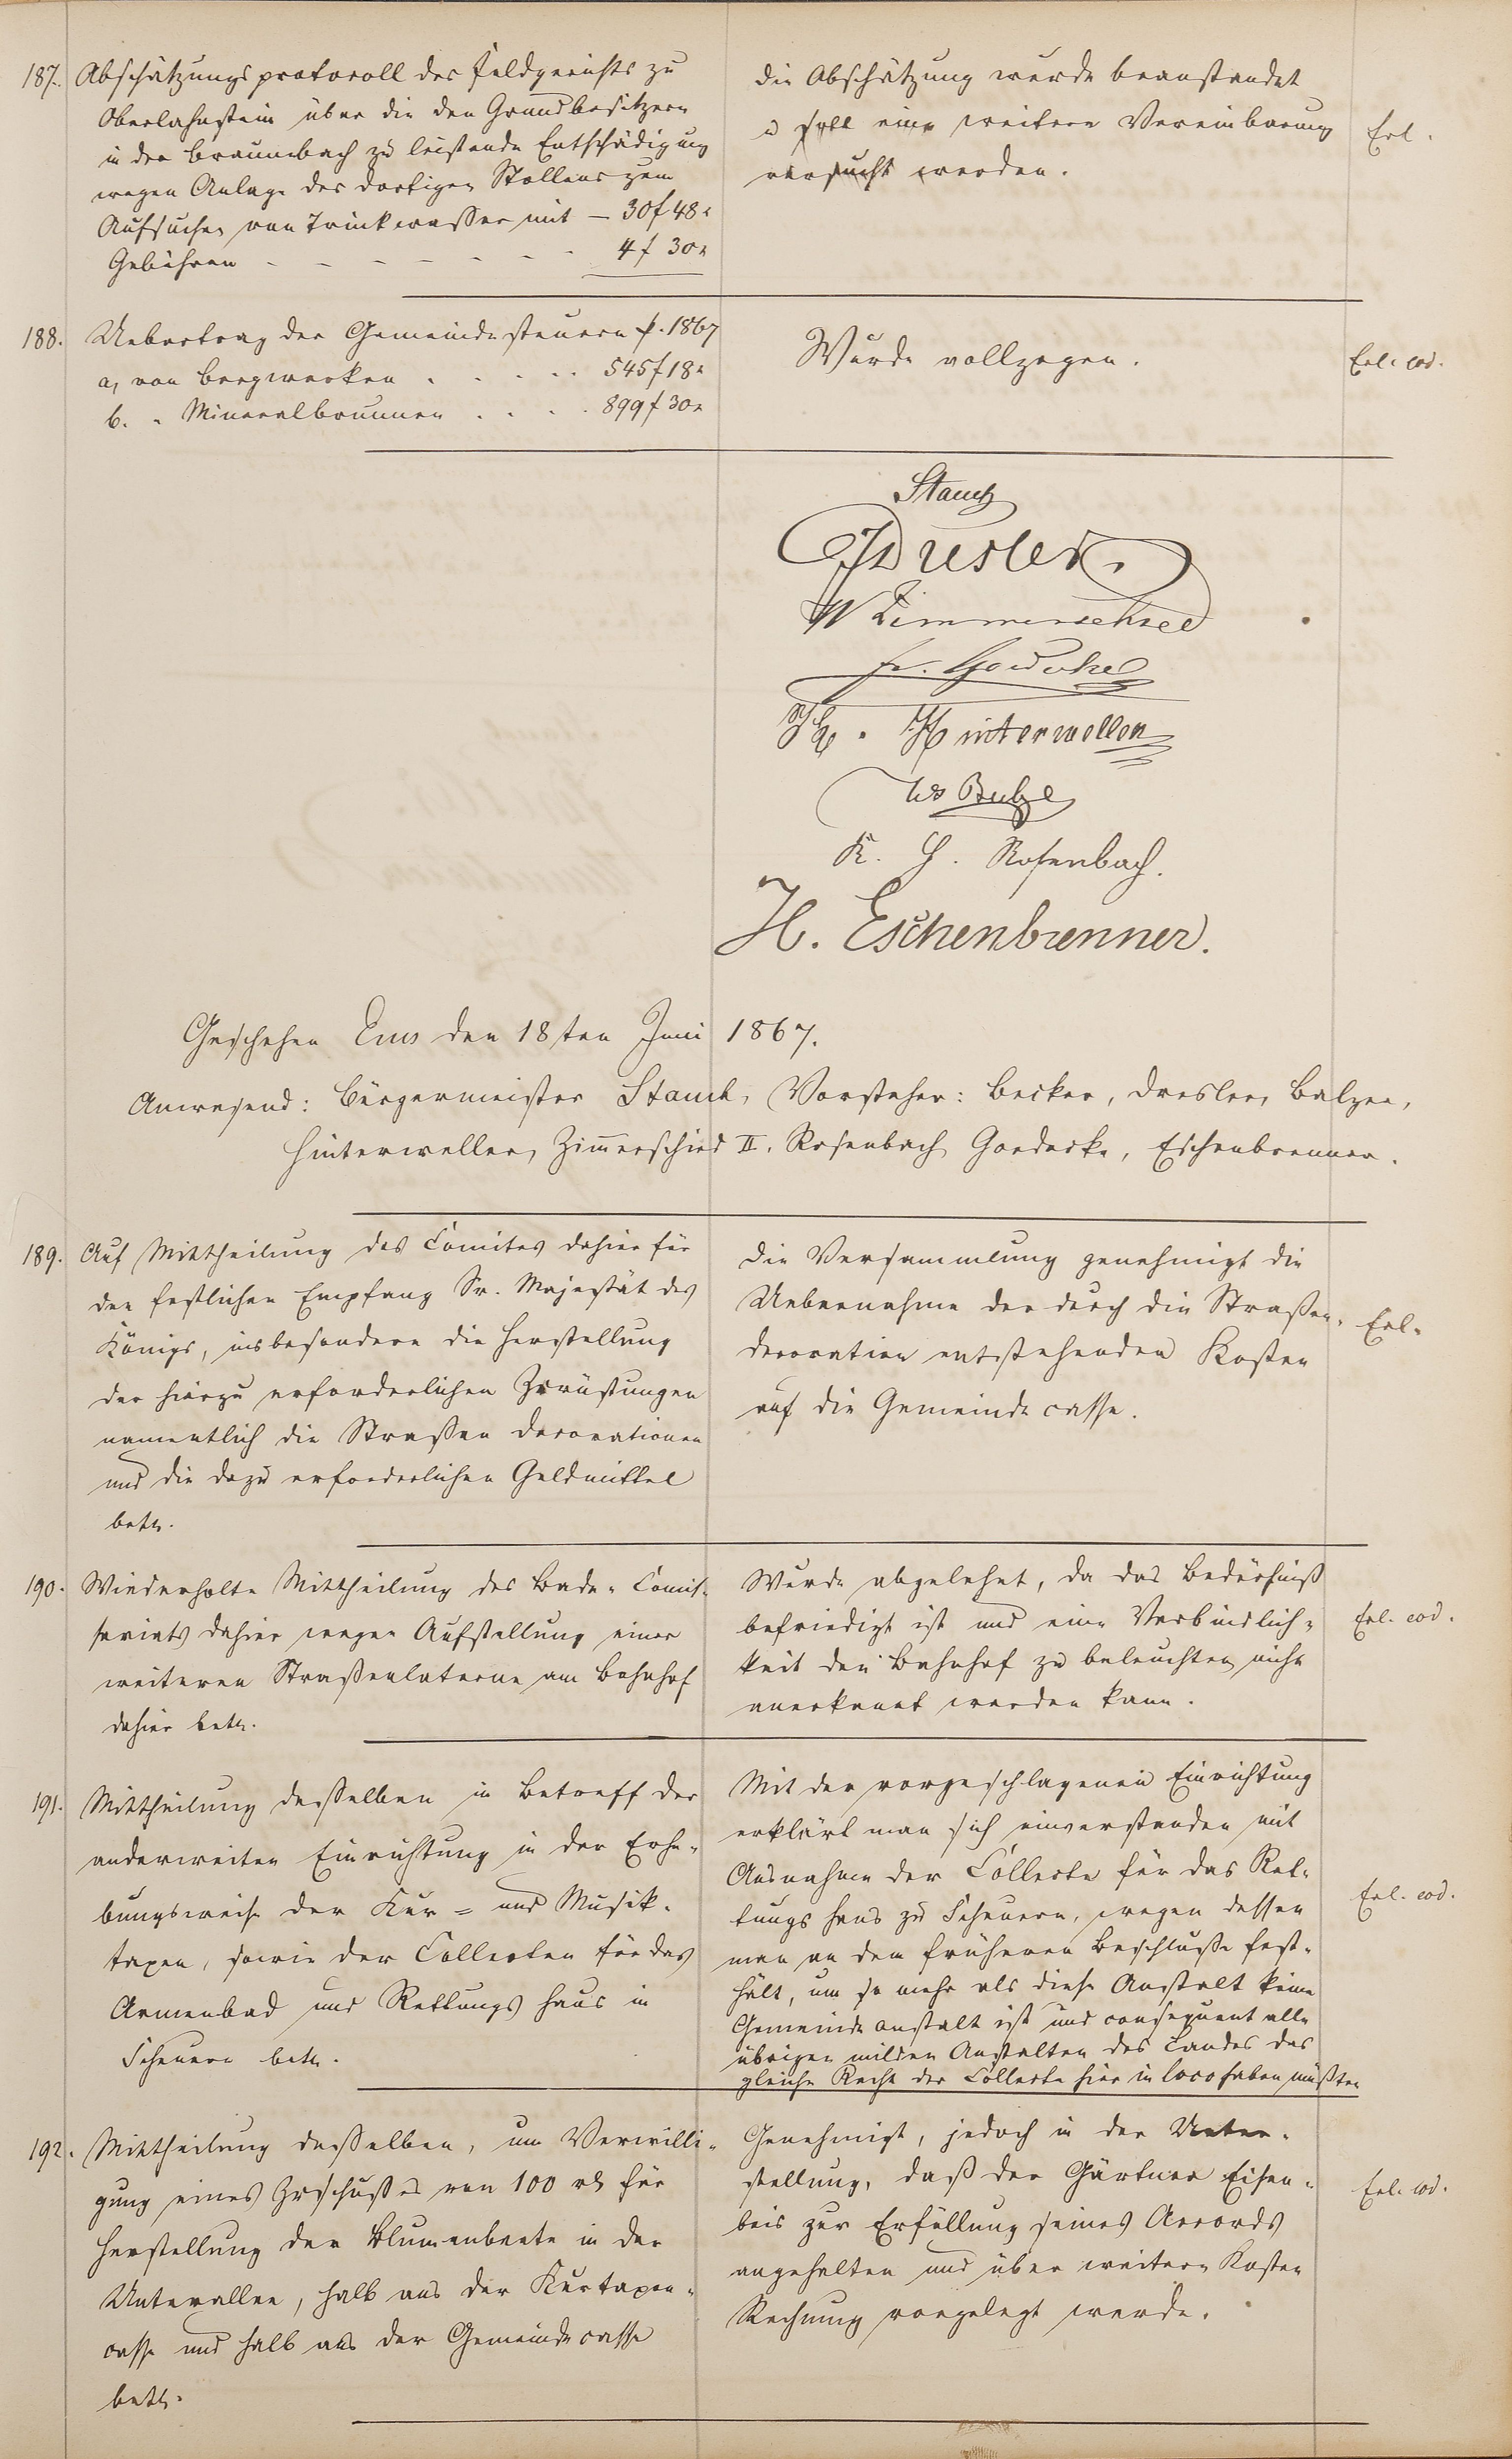 187. Abschätzungsprotocoll des Feldgerichts zu
Oberlahnstein über die den Grundbesitzern
in der Braunebach zu leistende Entschädigung
wegen Anlage des dortigen Stollens zum
Aufsuchen von Trinkwasser mit — 30 f 48 x
Gebühren - - - - - - - 4 f 30 x
Die Abschätzung wurde beanstandet
u soll eine weitere Vereinbarung
versucht werden.
Erl.
188. Uebertrag der Gemeindesteuern p. 1867
a, von Bergwerken . . . . . 545 f 18 x
b. " Mineralbrunnen . . . . 899 f 30 x
Wurde vollzogen.
Erl. eod.
Stauch
Dresler
W Zimmerschied
Fr. Goedecke
Ph. Hinterweller
W Balzer
K. H. Rosenbach.
H. Eschenbrenner.
Geschehen Ems den 18ten Juni 1867.
Anwesend: Bürgermeister Stauch, Vorsteher: Becker, Dresler, Balzer,
Hinterweller, Zimerschied II. Rosenbach Goedecke, Eschenbrenner.
189. Auf Mittheilung des Comites dahier für
den festlichen Empfang Sr. Majestät des
Königs, insbesondere die Herstellung
der hierzu erforderlichen Zurüstungen
namentlich die Straßen Decorationen
und die dazu erforderlichen Geldmittel
betr.
Die Versammlung genehmigt die
Uebernahme der durch die Straßen-
decoration entstehenden Kosten
auf die Gemeindecasse.
Erl.
190. Wiederholte Mittheilung des Bade-Comis-
sariats dahier wegen Aufstellung einer
weiteren Straßenlaterne am Bahnhof
dahier betr.
Wurde abgelehnt, da das Bedürfniß
befriedigt ist und eine Verbindlich-
keit den Bahnhof zu beleuchten nicht
anerkannt werden kann.
Erl. eod.
191. Mittheilung desselben in Betreff der
anderweiten Einrichtung in der Erhe-
bungsweise der Kur- und Musik-
taxen, sowie der Collecten für das
Armenbad und Rettungshaus in
Scheuern betr.
Mit der vorgeschlagenen Einrichtung
erklärt man sich einverstanden mit
Ausnahme der Collecte für das Ret-
tungshaus zu Scheuern, wegen dessen
man an dem früheren Beschlusse fest-
hält, um so mehr als diese Anstalt keine
Gemeindeanstalt ist und consequent alle
übrigen milden Anstalten des Landes das
gleiche Recht der Collecte hier in loco haben müßten
Erl. eod.
192. Mittheilung desselben, um Verwilli-
gung eines Zuschusses von 100 rh für
Herstellung der Blumenbeete in der
Unterallee, halb aus der Kurtaxen-
casse und halb aus der Gemeindecasse
betr.
Genehmigt, jedoch in der Unter-
stellung, daß der Gärtner Eisen-
beis zur Erfüllung seines Accords
angehalten und über weitere Kosten
Rechnung vorgelegt werde.
Erl. eod.